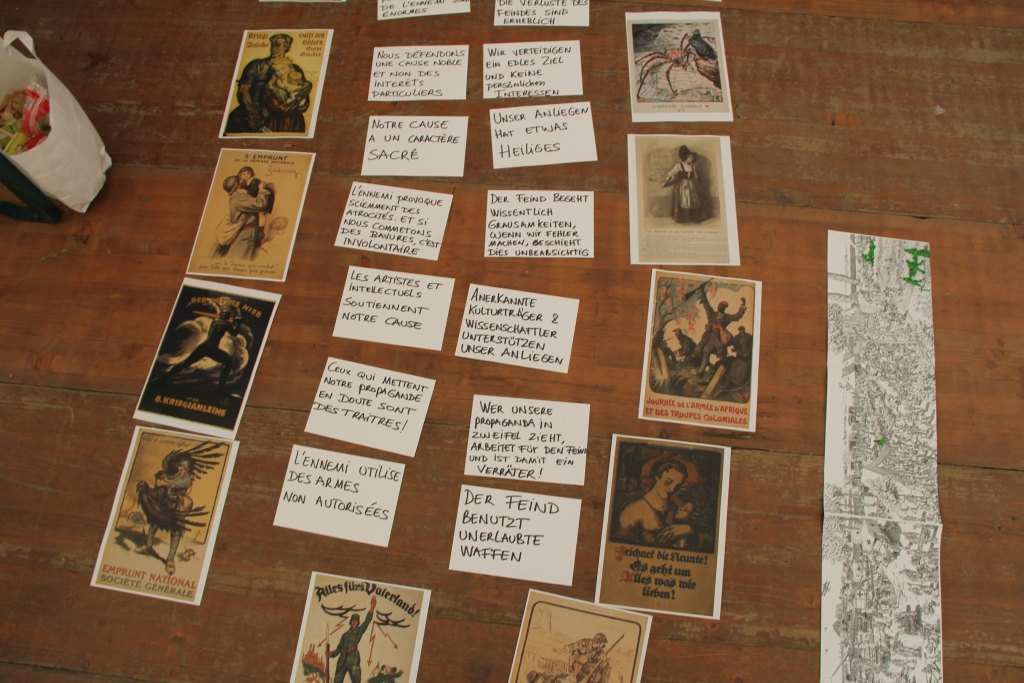 DE L'ENNEMI SONT
ÉNORMES
DIE VERLUSTE DES
FEINDES SIND
ERHEBLICH
NOUS DÉFENDONS
UNE CAUSE NOBLE
ET NON DES
INTERÊTS
PARTICULIERS
WIR VERTEIDIGEN
EIN EDLES ZIEL
UND KEINE
PERSÖNLICHEN
INTERESSEN
NOTRE CAUSE
A UN CARACTÈRE
SACRÉ
UNSER ANLIEGEN
HAT ETWAS
HEILIGES
L'ENNEMI PROVOQUE
SCIEMMENT DES
ATROCITÉS. ET SI
NOUS COMMETONS
DES BAVURES, C'EST
INVOLONTAIRE
DER FEIND BEGEHT
WISSENTLICH
GRAUSAMKEITEN,
WENN WIR FEHLER
MACHEN, GESCHIEHT
DIES UNBEABSICHTIG
LES ARTISTES ET
INTELLECTUELS
SOUTIENNENT
NOTRE CAUSE
ANERKANNTE
KULTURTRÄGER &
WISSENSCHAFTLER
UNTERSTÜTZEN
UNSER ANLIEGEN
CEUX QUI METTENT
NOTRE PROPAGANDE
EN DOUTE SONT
DES TRAITRES!
WER UNSERE
PROPAGANDA IN
ZWEIFEL ZIEHT,
ARBEITET FÜR DEN FEIND
UND IST DAMIT EIN
VERRÄTER!
L'ENNEMI UTILISE
DES ARMES
NON AUTORISÉES
DER FEIND
BENUTZT
UNERLAUBTE
WAFFEN
Kriegs-
Anleihe
3e EMPRUNT
DE LA DÉFENSE NATIONALE
8. KRIEGSANLEIHE
EMPRUNT NATIONAL
SOCIÉTÉ GÉNÉRALE
Alles fürs Vaterland!
JOURNÉE DE L'ARMÉE D'AFRIQUE
ET DES TROUPES COLONIALES
Zeichnet die Neunte!
Es geht um
Alles was wir
lieben!